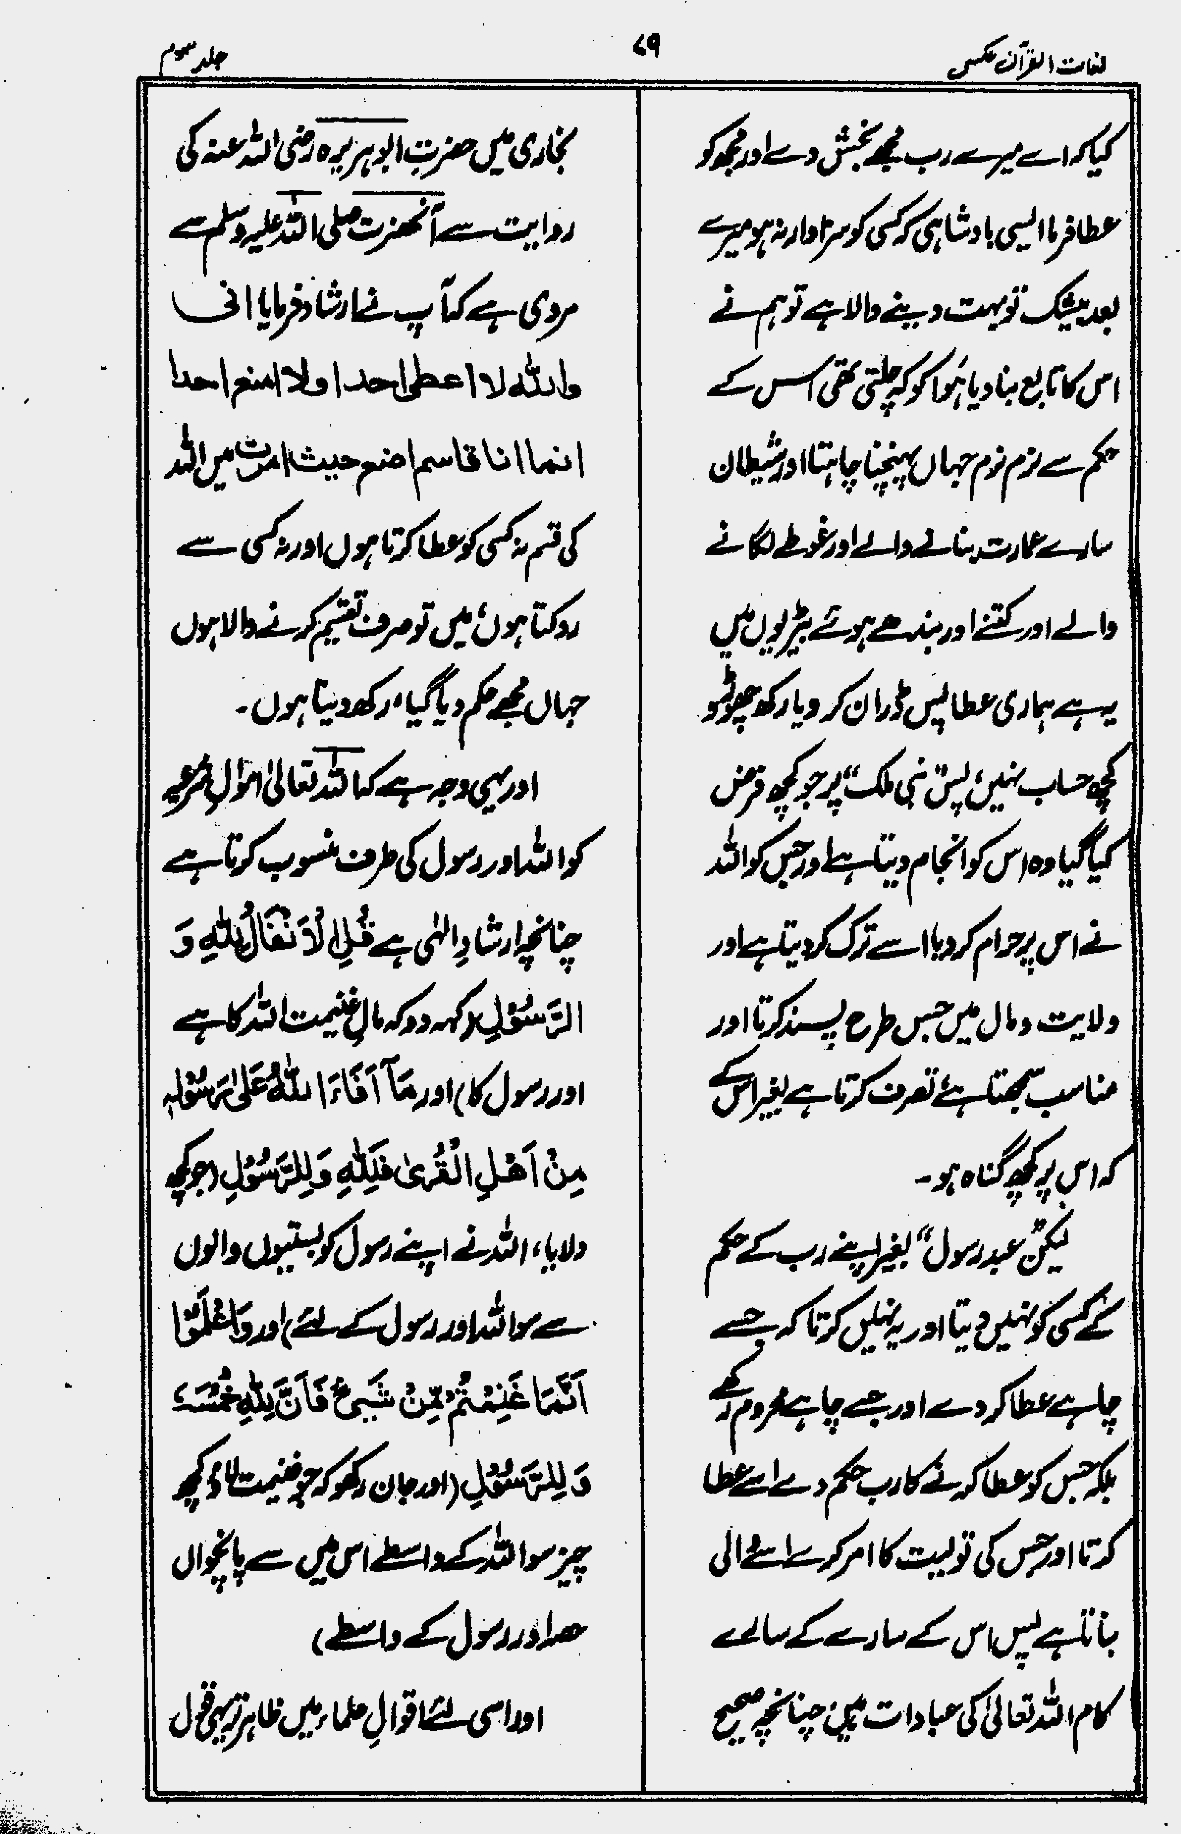 لغات القرآن عکسی
۷۹
جلد سوم
کیا کہ اے میرے رب مجھے بخش دے اور مجھ کو
عطا فرما ایسی بادشاہی کہ کسی کو سزاوار نہ ہو میرے
بعد بیشک تو بہت دینے والا ہے تو ہم نے
اس کا تابع بنا دیا ہَوا کو کہ چلتی تھی اس کے
حکم سے نرم نرم جہاں پہنچنا چاہتا اور شیطان
سارے عمارت بنانے والے اور غوطے لگانے
والے اور کتنے اور بندھے ہوئے بیڑیوں میں
یہ ہے ہماری عطا پس ڈران کر و یا رکھ چھوڑو
کچھ حساب نہیں، پس نبی ملک“ پر جو کچھ فرض
کیا گیا وہ اس کو انجام دیتا ہے اور جس کو اللہ
نے اس پر حرام کر دیا اسے ترک کر دیتا ہے اور
ولایت و مال میں جس طرح پسند کرتا اور
مناسب سمجھتا ہے تصرف کرتا ہے بغیر اس کے
کہ اس پر کچھ گناہ ہو۔
لیکن ”عبد رسول“ بغیر اپنے رب کے حکم
کے کسی کو نہیں دیتا اور یہ نہیں کرتا کہ جسے
چاہے عطا کر دے اور جسے چاہے محروم رکھے
بلکہ جس کو عطا کرنے کا رب حکم دے اسے عطا
کرتا اور جس کی تولیت کا امر کرے اسے والی
بناتا ہے پس اس کے سارے کے سارے
کام اللہ تعالیٰ کی عبادات ہیں چنانچہ صحیح
بخاری میں حضرت ابوہریرہ رضی اللہ عنہ کی
روایت سے آنحضرت صلی اللہ علیہ وسلم سے
مروی ہے کہ آپ نے ارشاد فرمایا انی
واللہ لا اعطی احدا ولا امنع احدا
انما انا قاسم اضع حیث امرت میں اللہ
کی قسم نہ کسی کو عطا کرتا ہوں اور نہ کسی سے
روکتا ہوں، میں تو صرف تقسیم کرنے والا ہوں
جہاں مجھے حکم دیا گیا، رکھ دیتا ہوں۔
اور یہی وجہ ہے کہ اللہ تعالیٰ اموالِ شرعیہ
کو اللہ اور رسول کی طرف منسوب کرتا ہے
چنانچہ ارشادِ الٰہی ہے قُلِ الْاَنْفَالُ لِلّٰهِ وَ
الرَّسُوْلِ (کہہ دو کہ مالِ غنیمت اللہ کا ہے
اور رسول کا) اور مَآ اَفَآءَ اللّٰهُ عَلٰى رَسُوْلِهٖ
مِنْ اَهْلِ الْقُرٰى فَلِلّٰهِ وَلِلرَّسُوْلِ (جو کچھ
دلایا، اللہ نے اپنے رسول کو بستیوں والوں
سے سو اللہ اور رسول کے لئے) اور وَاعْلَمُوْٓا
اَنَّمَا غَنِمْتُمْ مِّنْ شَیْءٍ فَاَنَّ لِلّٰهِ خُمُسَهٗ
وَلِلرَّسُوْلِ (اور جان رکھو کہ جو غنیمت لاؤ کچھ
چیز سو اللہ کے واسطے اس میں سے پانچواں
حصہ اور رسول کے واسطے)
اور اسی لئے اقوالِ علماء میں ظاہر تر یہی قول